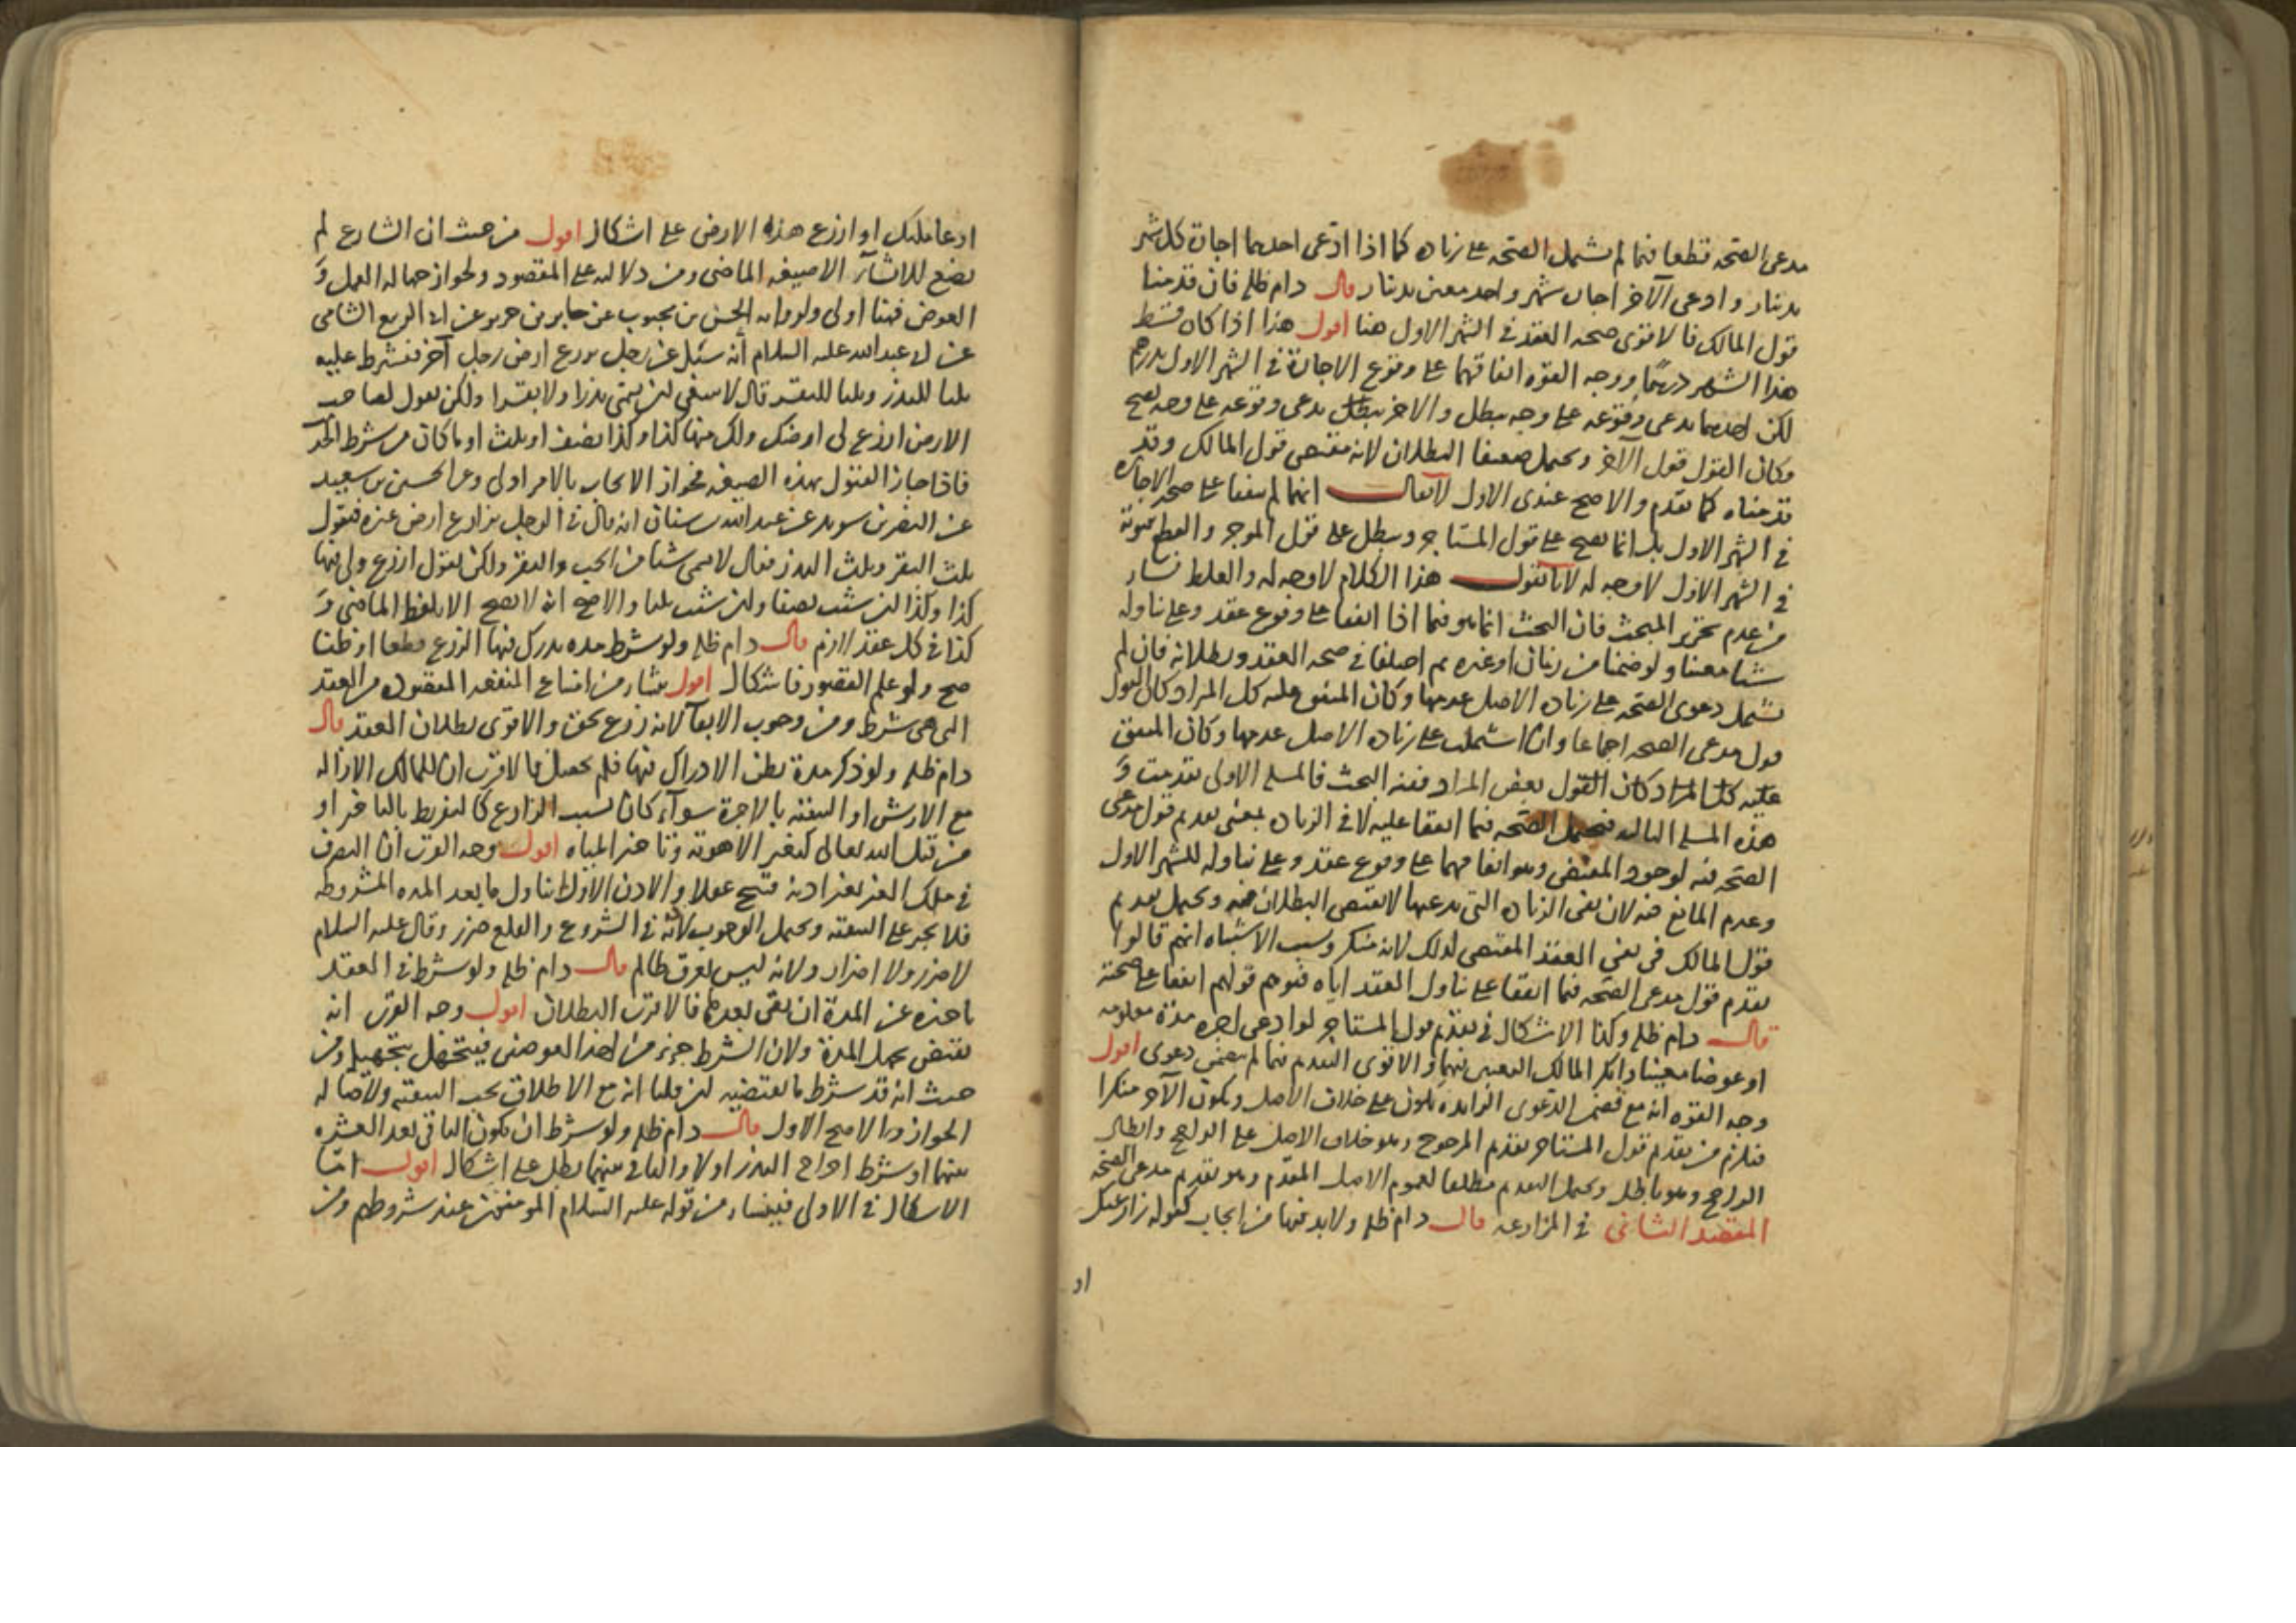 مدعى الصحه قطعا فيما لم يشمل الصحه على زياده كما اذا ادعى احدهما اجاره كل شهر
بدينار وادعى الآخر اجاره شهر واحد معين بدينار قال دام ظله فان قدمنا
قول المالك فالاقوى صحه العقد فى الشهر الاول هنا اقول هذا اذا كان قسط
هذا الشهر درهما ووجه القوه اتفاقهما على وقوع الاجارة فى الشهر الاول بدرهم
لكن احدهما يدعى وقوعه على وجه يبطل والاخر يدعى وقوعه على وجه يصح
وكان القول قول الآخر ويحتمل ضعيفا البطلان لانه مقتضى قول المالك وقد
قدمناه كما تقدم والاصح عندى الاول لايقال انهما لم يتفقا على صحه الاجاره
فى الشهر الاول بل انما يصح على قول المستاجر ويبطل على قول الموجر والقطع بثبوته
فى الشهر الاول لاوجه له لانا نقول هذا الكلام لاوجه له والغلط نشا
من عدم تحرير المبحث فان البحث انما هو فيما اذا اتفقا على وقوع عقد وعلى تناوله
شيئا معينا ولو ضمنا من زمان اوغيره ثم اختلفا فى صحه العقد وبطلانه فان لم
يشمل دعوى الصحه على زياده الاصل عدمها وكان المتفق عليه كل المراد كان القول
قول مدعى الصحه اجماعا وان اشتملت على زياده الاصل عدمها وكان المتفق
عليه كان القول بعض المراد ففيه البحث فالمسله الاولى تقدمت و
هذه المسله الثالثه فيحتمل الصحه فيما اتفقا عليه لا فى الزياده بمعنى تقديم قول مدعى
الصحه فيه لوجود المقتضى وهو اتفاقهما على وقوع عقد وعلى تناوله للشهر الاول
وعدم المانع منه لان نفى الزياده التى يدعيها لايقتضى البطلان فيه ويحتمل تقديم
قول المالك فى نفى العقد المقتضى لذلك لانه منكر وسبب الاشتباه انهم قالوا
يقدم قول مدعى الصحه فيما اتفقا على تناول العقد اياه فتوهم قولهم اتفقا على صحته
قال دام ظله وكذا الاشكال فى تقديم قول المستاجر لو ادعى اجره مدة معلومه
او عوضا معينا وانكر المالك التعيين فيهما والاقوى التقديم فيما لم يتضمن دعوى اقول
وجه القوه انه مع تضمن الدعوى الزايده يكون على خلاف الاصل ويكون الآخر منكرا
فيلزم من تقديم قول المستاجر تقديم المرجوح وهو خلاف الاصل على الراجح وابطال
الراجح وهو باطل ويحتمل التقديم مطلقا لعموم الاصل المقدم وهو تقديم مدعى الصحه
المقصد الثانى فى المزارعه قال دام ظله ولابد فيها من ايجاب كقوله زارعتك
او
اوعاملتك او ازرع هذه الارض على اشكال اقول من حيث ان الشارع لم
يضع للانشآ الا صيغه الماضى ومن دلالته على المقصود ولجواز جهاله العمل و
العوض فهنا اولى ولروايه الحسن بن محبوب عن خالد بن جرير عن ابى الربيع الشامى
عن ابى عبد الله عليه السلام أنه سئل عن رجل يزرع ارض رجل آخر فيشرط عليه
ثلثا للبذر وثلثا للبقر قال لاينبغى ان يسمى بذرا ولا بقرا ولكن يقول لصاحب
الارض ازرع فى ارضك ولك منها كذا وكذا نصف او ثلث او ما كان من شرط
فاذا جاز القبول بهذه الصيغه فجواز الايجاب بالامر اولى وعن الحسين بن سعيد
عن النضر بن سويد عن عبد الله بن سنان انه قال فى الرجل يزارع ارض غيره فيقول
ثلث البقر وثلث البذر فقال لايسمى شيئا من الحب والبقر ولكن يقول ازرع ولى فيها
كذا وكذا ان شئت نصفا وان شئت ثلثا والاصح انه لايصح الا بلفظ الماضى و
كذا فى كل عقد لازم قال دام ظله ولو شرط مده يدرك فيها الزرع قطعا او ظنا
صح ولو علم القصور فاشكال اقول ينشا من امتناع المنفعه المقصوده من العقد
التى هى شرط ومن وجوب الابقآ لانه زرع بحق والاقوى بطلان العقد قال
دام ظله ولو ذكر مدة يظن الادراك فيها فلم يحصل فالاقرب ان للمالك الازاله
مع الارش او التبقيه بالاجرة سوآء كان بسبب الزارع كالتفريط بالتاخير او
من قبل الله تعالى كتغير الاهويه وتاخير المياه اقول وجه القرب ان التصرف
فى ملك الغير بغير اذنه قبيح عقلا والاذن الاول ماتناول ما بعد المده المشروطه
فلا يجبر على التبقيه ويحتمل الوجوب لانه فى الشروع والقلع ضرر وقال عليه السلام
لا ضرر ولا اضرار ولانه ليس بعرق ظالم قال دام ظله ولو شرط فى العقد
تاخيره عن المدة ان بقى بعدها فالاقرب البطلان اقول وجه القرب انه
يقتضى جهل المدة ولان الشرط جزء من احد العوضين فيتجهل بتجهيله ومن
حيث انه قد شرط ما يقتضيه ان قلنا انه مع الاطلاق يجب التبقيه ولاصاله
الجواز والاصح الاول قال دام ظله ولو شرط ان يكون الباقى بعد العشره
بينهما او شرط اخراج البذر اولا والباقى بينهما بطل على اشكال اقول امّا
الاشكال فى الاولى فينشاء من قوله عليه السلام المومنون عند شروطهم ومن